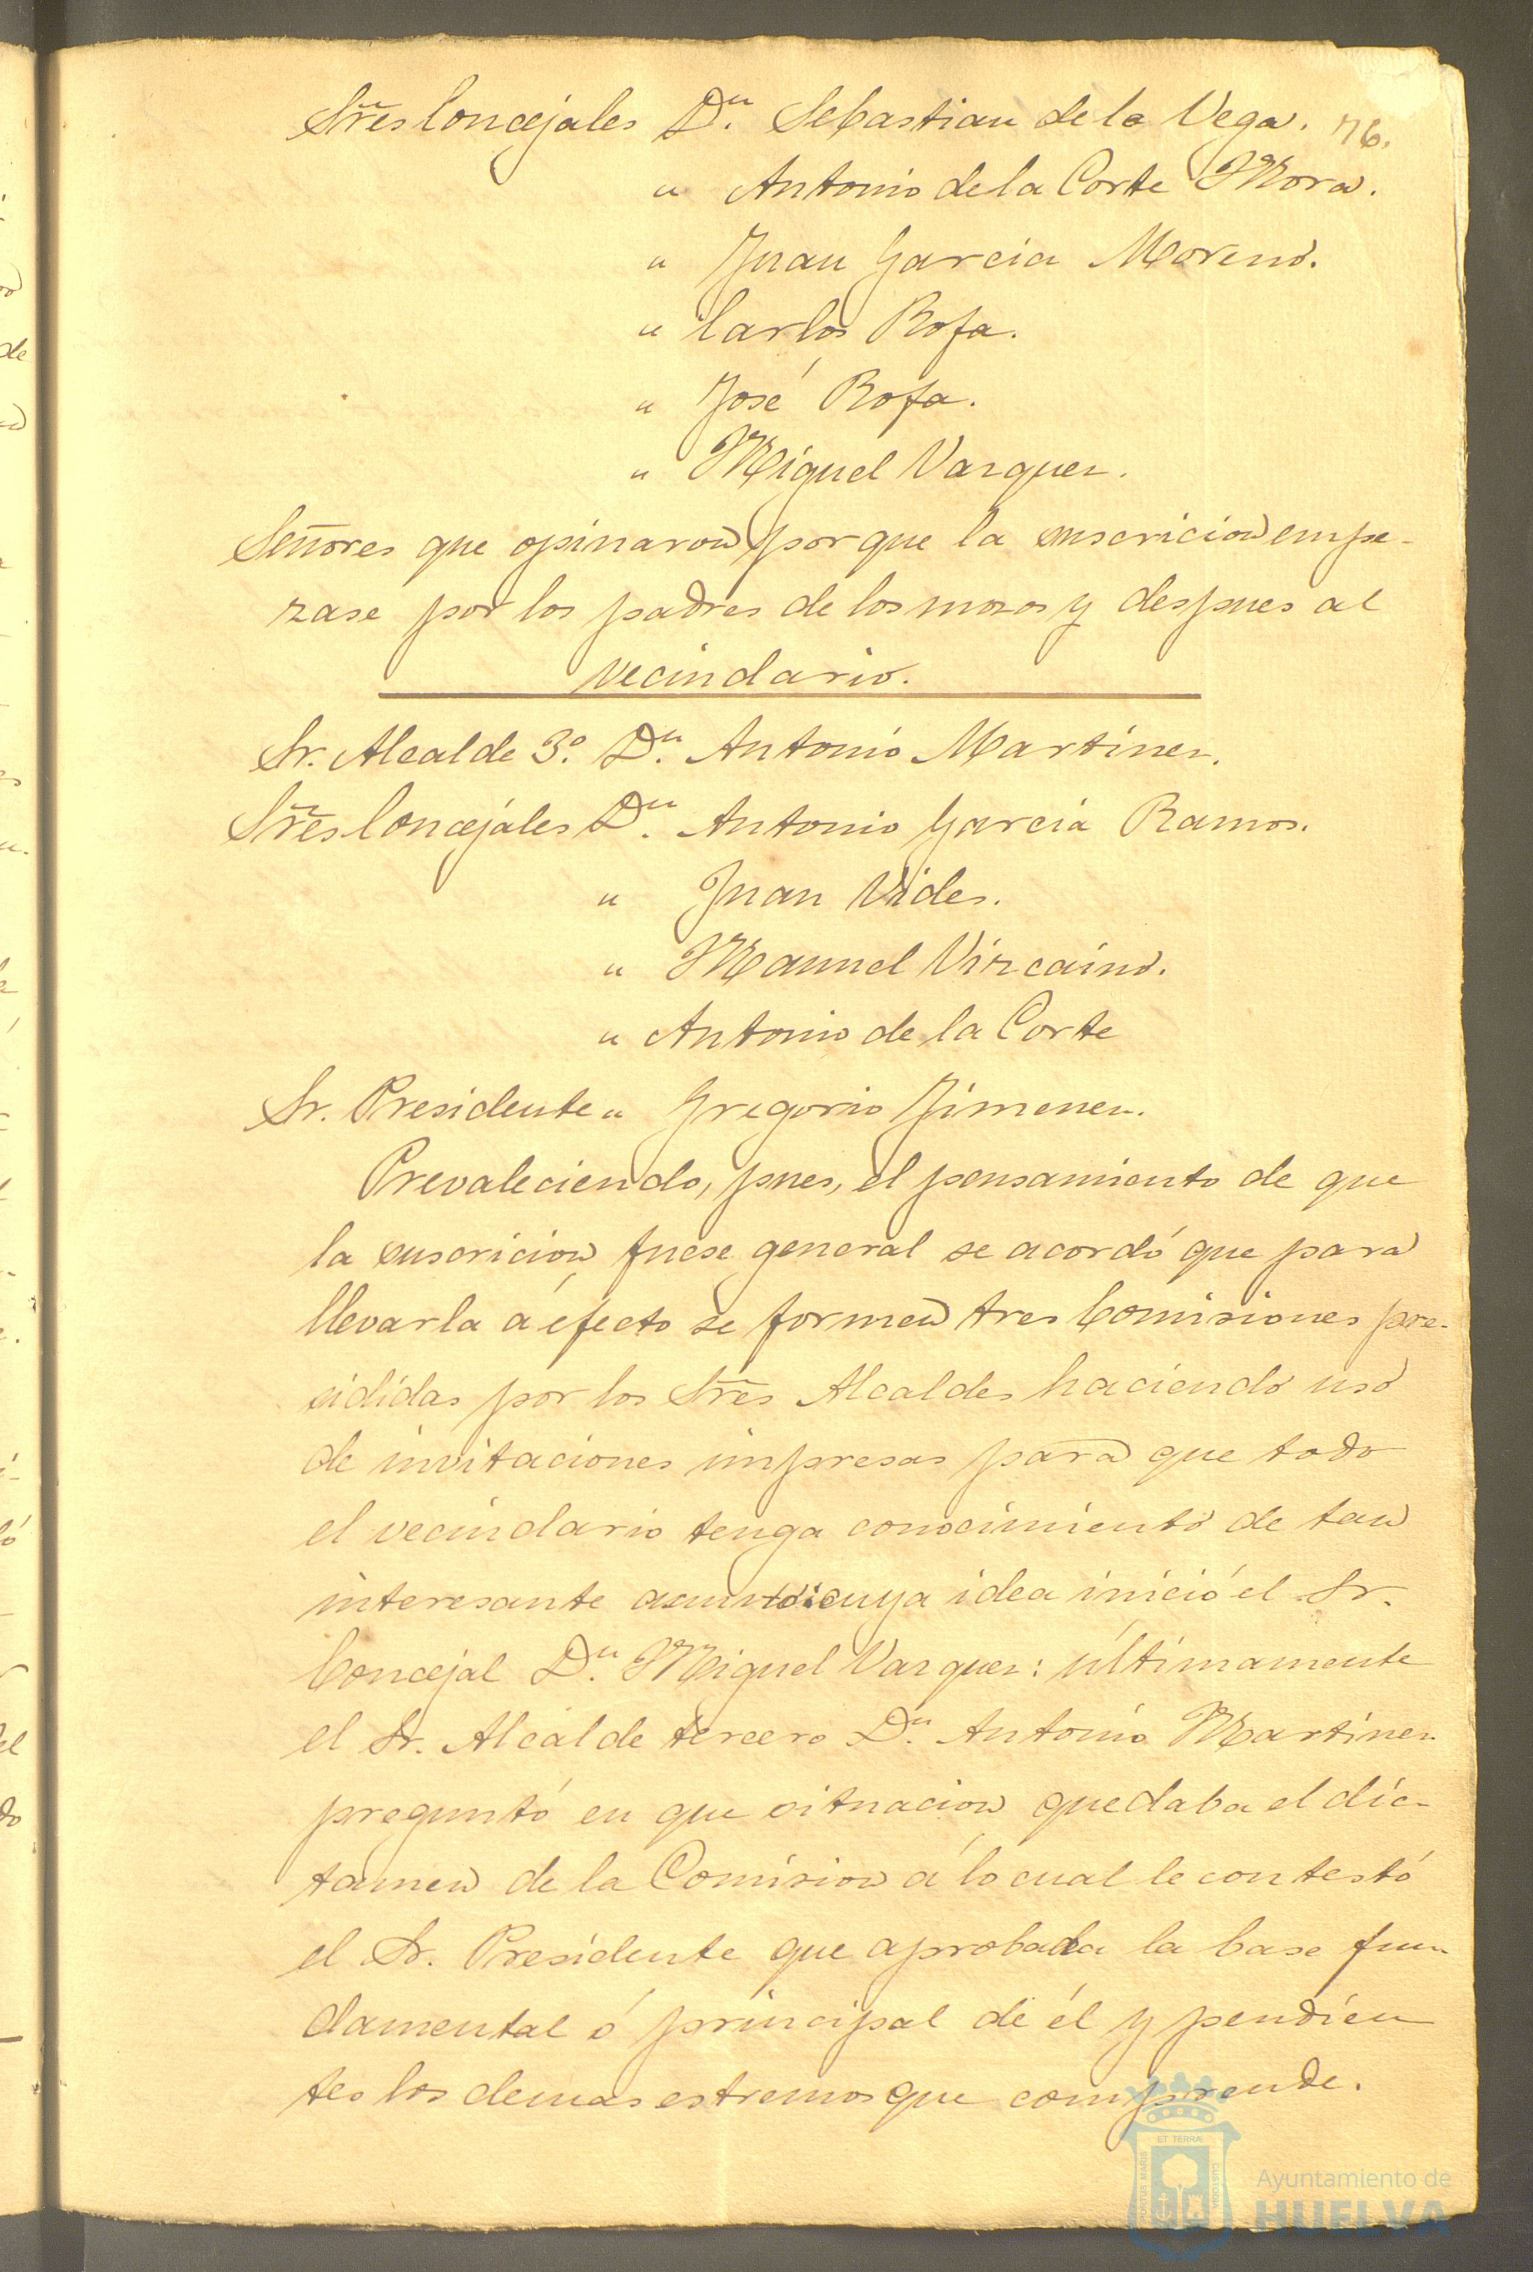 Sres Concejales Dn. Sebastian de la Vega. 76.
" Antonio de la Corte Mora.
" Juan Garcia Moreno.
" Carlos Rofa.
" José Rofa.
" Miguel Vazquez.
Señores que opinaron porque la suscricion empe-
zase por los padres de los mozos y despues al
vecindario.
Sr. Alcalde 3º. Dn. Antonio Martinez.
Sres Concejales Dn. Antonio Garcia Ramos.
" Juan Vides.
" Manuel Vizcaino.
" Antonio de la Corte
Sr. Presidente " Gregorio Jimenez.
Prevaleciendo, pues, el pensamiento de que
la suscricion fuese general se acordó que para
llevarla á efecto se formen tres Comisiones pre-
sididas por los Sres Alcaldes haciendo uso
de invitaciones impresas para que todo
el vecindario tenga conocimiento de tan
interesante asunto: cuya idea inició el Sr.
Concejal Dn. Miguel Vazquez: últimamente
el Sr. Alcalde tercero Dn. Antonio Martinez
preguntó en que situacion quedaba el dic-
tamen de la Comision á lo cual le contestó
el Sr. Presidente que aprobada la base fun-
damental ó principal de él y pendien
tes los demas estremos que comprende.
ET TERRÆ
PORTUS MARIS
CUSTODIA
Ayuntamiento de
HUELVA